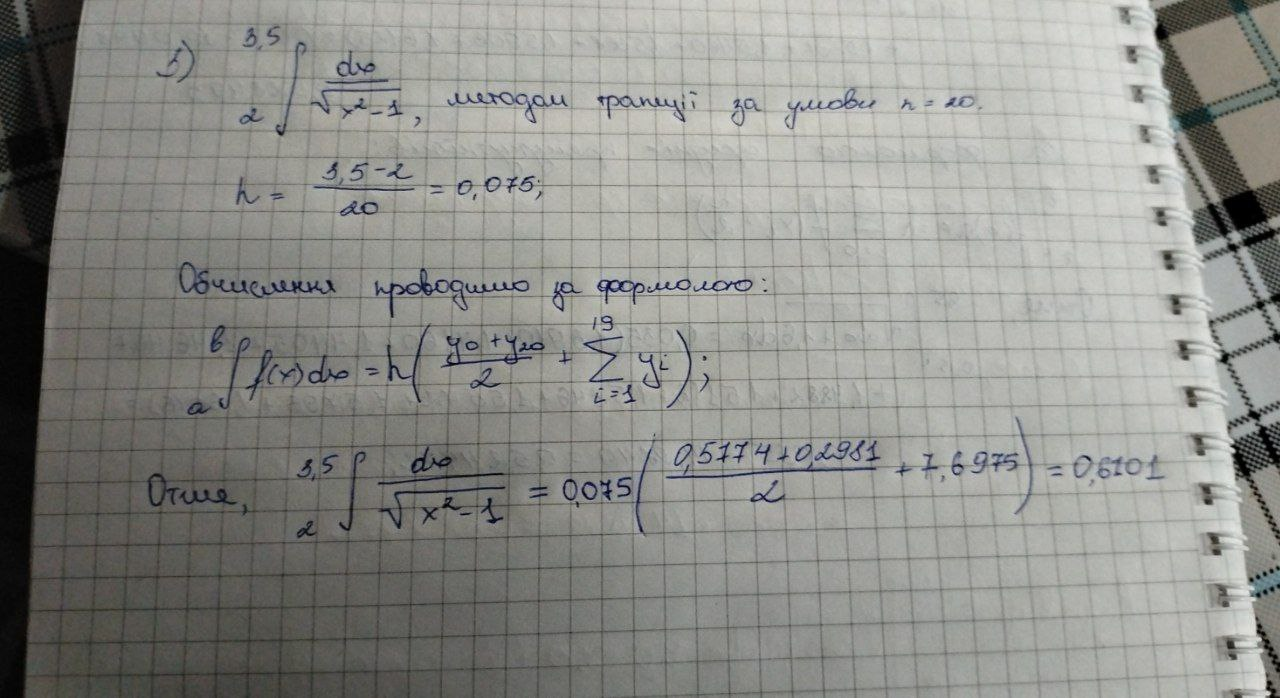 1) ∫₂^3,5 dx/√(x²-1), методом трапеції за умови n = 20.
h = (3,5-2)/20 = 0,075;
Обчислення проводимо за формолою:
ₐ^в∫ f(x)dx = h((y0 + y20)/2 + Σ_{i=1}^{19} yi);
Отже, ∫₂^3,5 dx/√(x²-1) = 0,075((0,5774+0,2981)/2 + 7,6975) = 0,6101